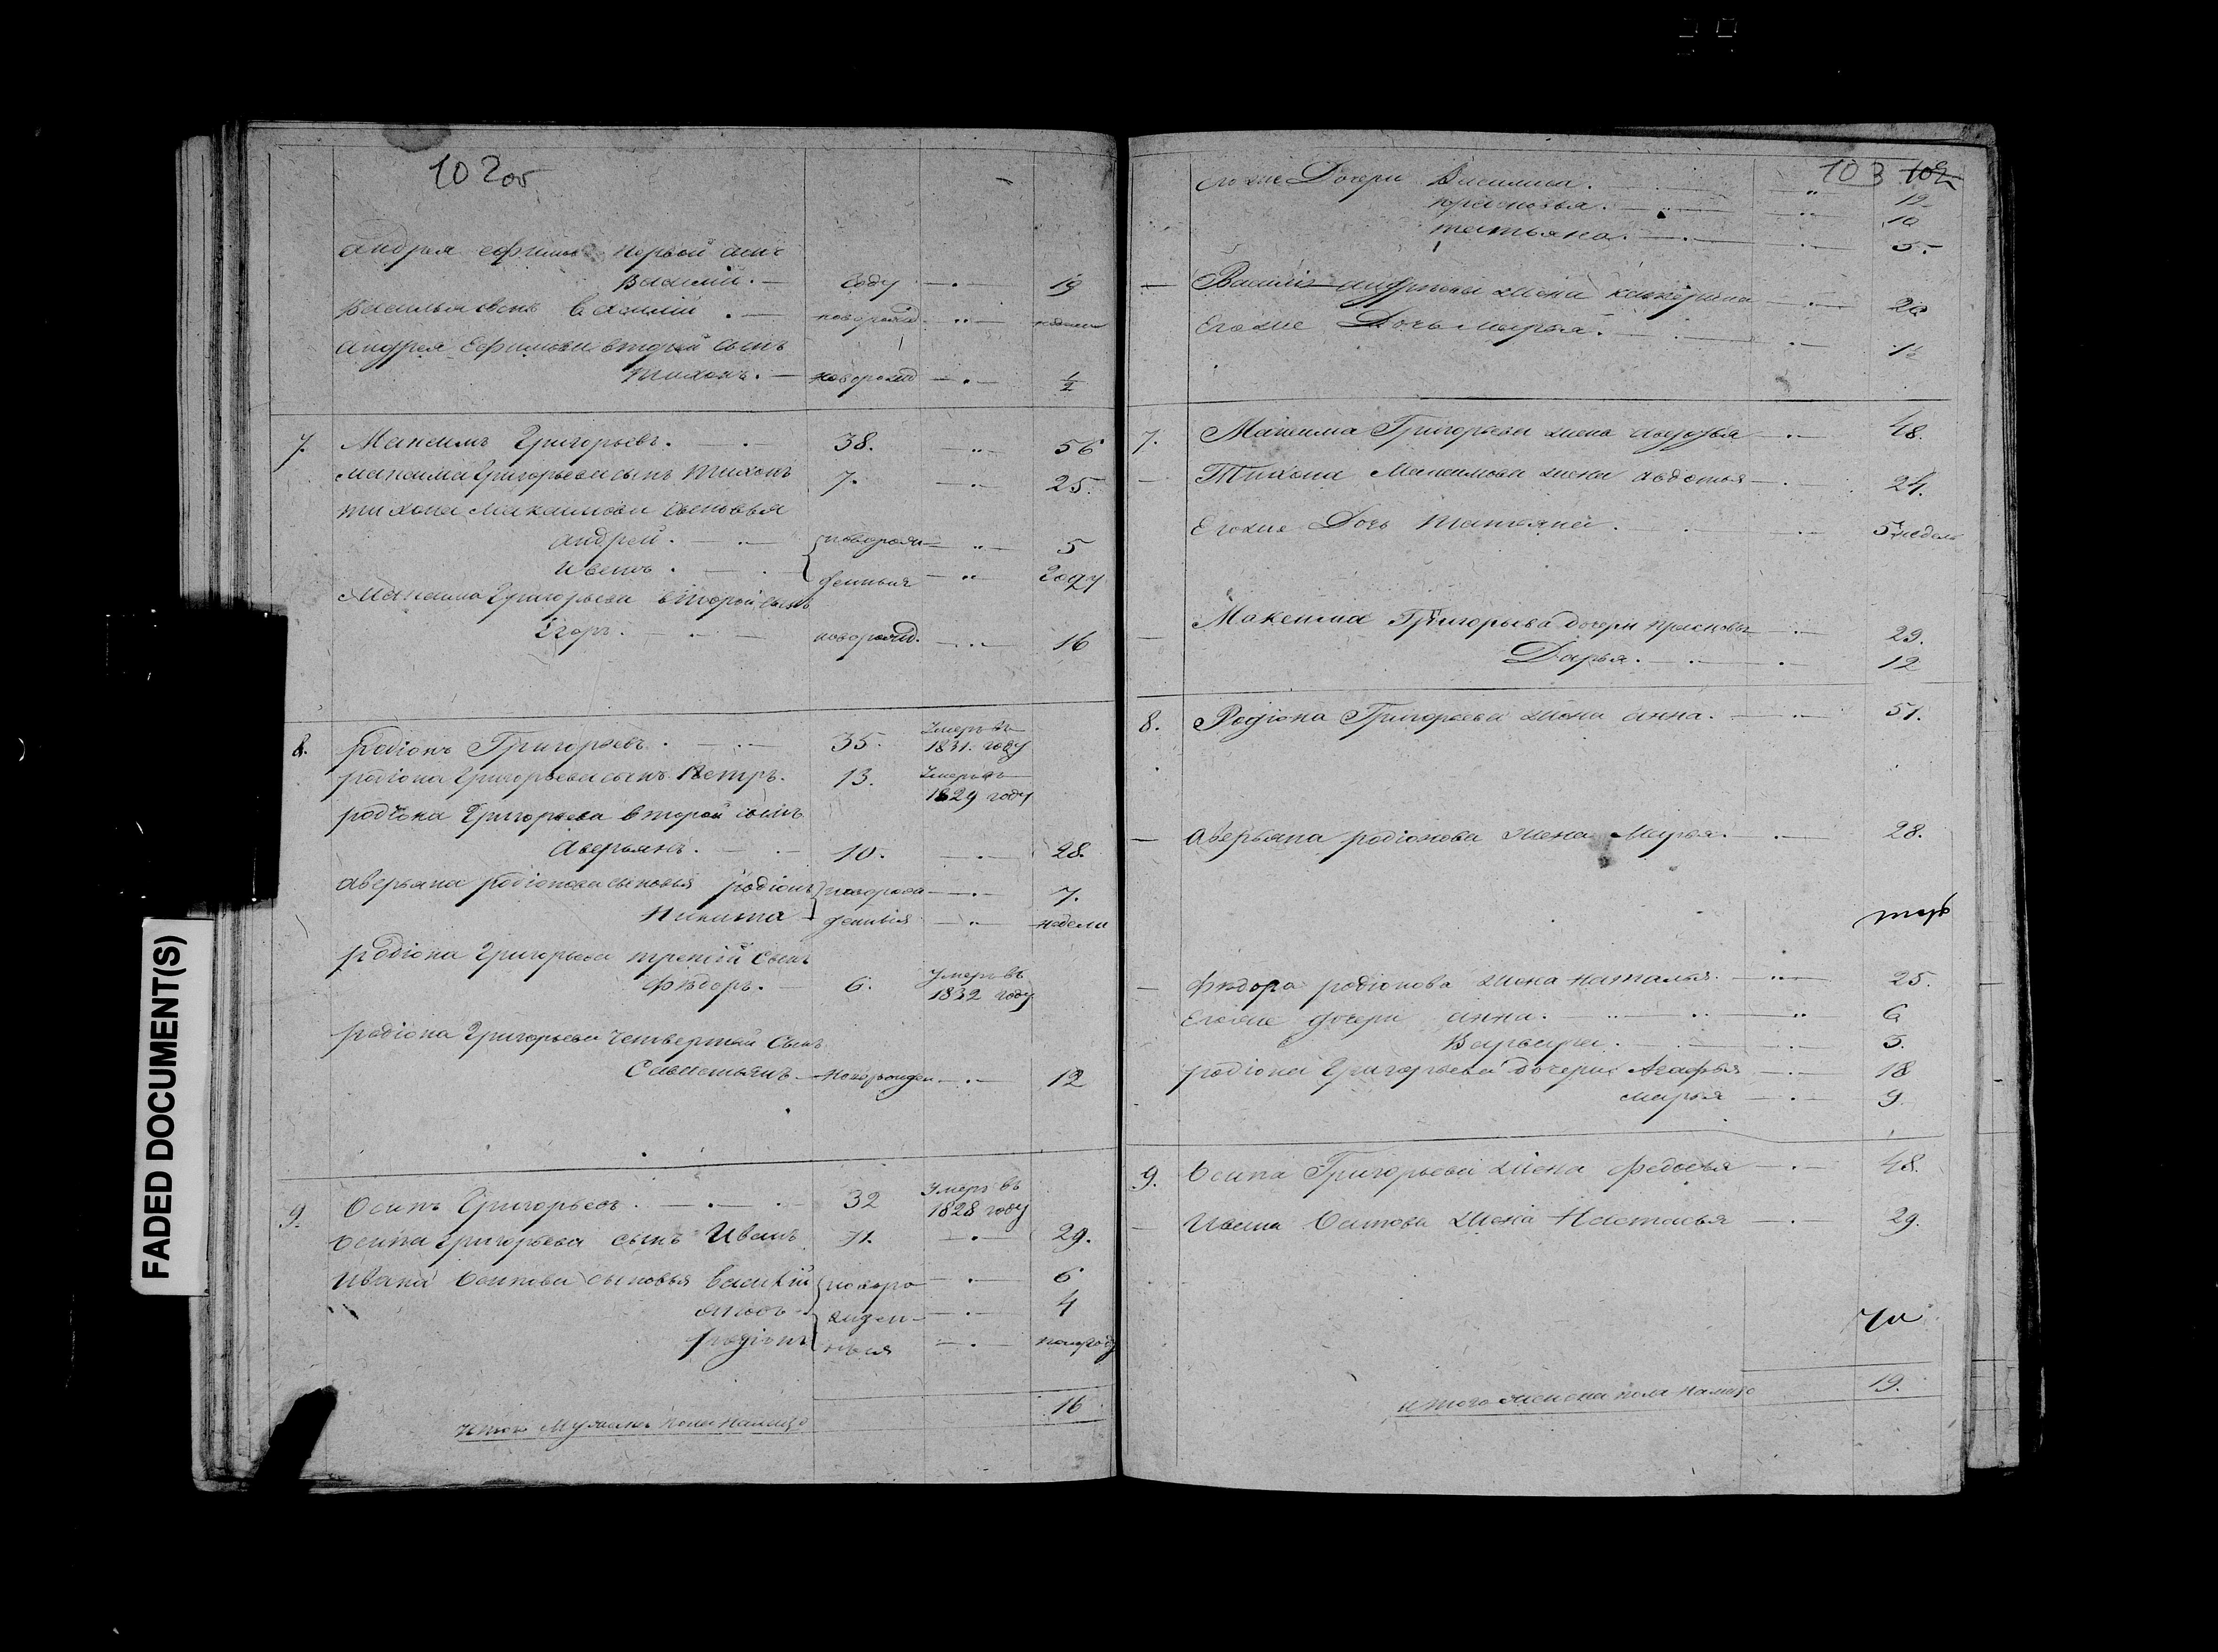 102об
Андрея Ефимова первой сынъ
Василий. году 19
Васильи сынъ Василий. новорожд. недели
Андрея Ефимова вторый сынъ
Тихонъ. новорожд ½
7. Максимъ Григорьевъ. 38. 56
Максима Григорьева сынъ Тихонъ 7. 25.
Тихона Максимова сыновья
Андрей. новорож 5
Иванъ. денныя году
Максима Григорьева второй сынъ
Егоръ. новорожд. 16
8. Родіонъ Григорьевъ. 35. Умеръ въ 1831. году
Родіона Григорьева сынъ Петръ. 13. Умеръ въ 1829 году
Родіона Григорьева второй сынъ
Аверьянъ. 10. 28.
Аверьяна Родіонова сыновья Родіонъ новорож 7.
Никита денныя недели
Родіона Григорьева третий сынъ
Фѣдоръ. 6. Умеръ въ 1832 году
Родіона Григорьева четвертый сынъ
Савастьянъ новорожден 12
9. Осипъ Григорьевъ. 32 Умеръ въ 1828 году
Осипа Григорьева сынъ Иванъ 11. 29.
Ивана Осипова сыновья новоро 6
жден 4
Родіонъ ныя полгода
Итого мужска пола налицо 16
103 102
Егоже Дочери Василиса. 12
Прасковья. 10
Татьяна. 5.
Василія Андреева жена Катерина 20
Егоже Дочь Марья. 1½
7. Максима Григорьева жена 48.
Тихона Максимова жена Авдотья 24.
Егоже Дочь Татьяна. 5 недель
Максима Григорьева дочери Прасковья 29.
Дарья. 12
8. Родіона Григорьева жена Анна. 51.
Аверьяна Родіонова жена Марья. 28.
Фѣдора Родіонова жена Наталья. 25.
Егоже дочери Анна. 6
Варвара. 3.
Родіона Григорьева дочери Агафья 18
Марья 9.
9. Осипа Григорьева жена Федосья 48.
Ивана Осипова жена Настасья 29.
Итого женска пола налицо 19.
FADED DOCUMENT(S)